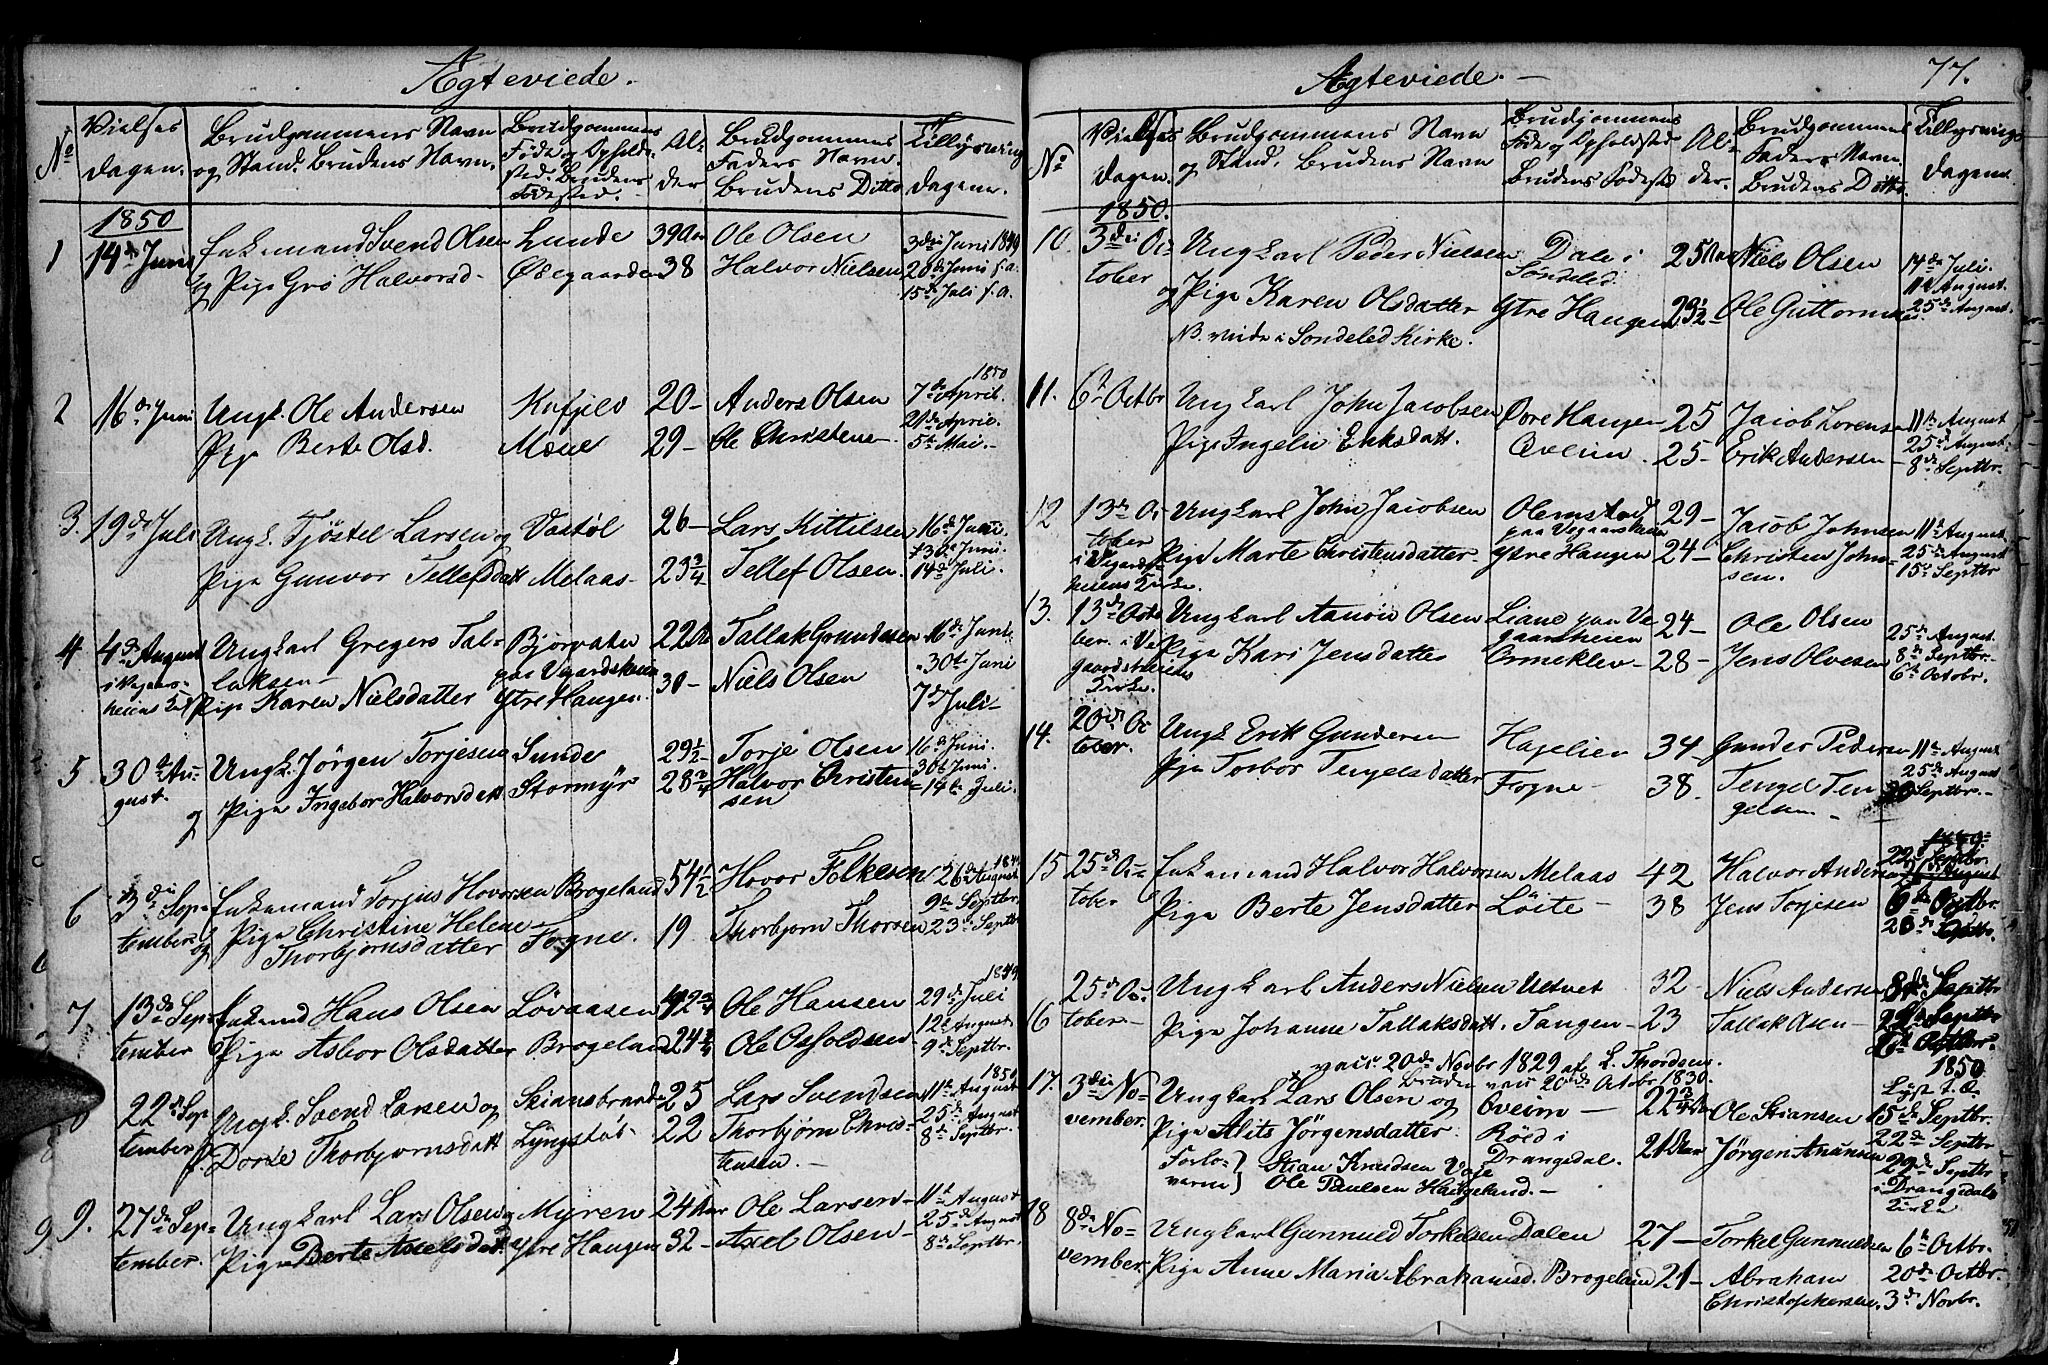 Ægteviede.
No
Vielses dagen.
Brudgommens Navn og Stand. Brudens Navn.
Brudgommens Føde og Opholdssted. Brudens Fødested.
Alder
Brudgommens Faders Navn. Brudens Ditto
Tillysnings dagene.
1850
1 14de Juni Enkemand Svend Olsen Lunde 39 Aar Ole Olsen 3die Juni 1849
og Pige Gro Halvorsd. Ødegaarden 38 Halvor Nielsen 20de Juni s.a.
15de Juli s.a.
1850
2 16de Juni Ungk. Ole Andersen 20 - Anders Olsen 7de April.
Pige Berte Olsd. 29 - Ole Christens 21de April.
5te Mai. -
3. 19de Juli Ungk. Tjöstel Larsen og Vastøl 26 - Lars Kittilsen 16de Juni.
Pige Gunvor Tellefsdatt Melaas - 23 3/4 Tellef Olsen. 30te Juni.
14de Juli.
4 4de August Ungkarl Gregers Tal- Bjorvatn 22 Aar Tallak Grundesen 16de Juni
i Vegaars- laksen - paa Vegardsheien 30te Juni
heiens Pige Karen Nielsdatter Ytre Haugen. 30 - Niels Olsen 7de Juli -
5. 30te Au- Ungk. Jörgen Torjesen Sunde 29 1/2 Torje Olsen 16de Juni.
gust. og Pige Ingebor Halvorsdatt Stormyr 28 3/4 Halvor Christen- 30te Juni.
sen 14de Juli.
6 3die Sep- Enkemand Torjus Hovorsen Brogeland 54 1/2 Hovor Folkesen 26de August
tember og Pige Christine Helene Fogne. 19 Thorbjorn Thorsen 9de Septbr.
Thorbjörnsdatter 23de Septbr
1849
7 13de Sep- Enkemd Hans Olsen Lövaasen Ole Hansen 29de Juli
tember Pige Asbor Olsdatter Brogeland 24 3/4 Ole Osfoldsen 12te August
9de Septbr.
1850
22de Sep- Ungk. Svend Larsen og 25 Lars Svendsen 11te August
tember P. Dorte Thorbjørnsdatt Lyngstøl 22 Thorbjörn Chris- 25de August
tensen. - 8de Septbr.
9. 27de Sep- Ungkarl Lars Olsen og Myren 24 Aar Ole Larsen - 11te August
tember. Pige Berte Axelsdatt Ytre Haugen 32 - Axel Olsen - 25de August
8de Septbr.
Ægteviede. -
77.
No
Vielses dagen.
Brudgommens Navn og Stand, Brudens Navn
Brudgommens Føde og Opholdsted Brudens Fødested
Alder.
Brudgommens Faders Navn. Brudens Ditto.
Tillysnings dagene.
1850.
10. 3die Oc- Ungkarl Peder Nielsen Dale i 25 Aar Niels Olsen 14de Juli.
tober og Pige Karen Olsdatter Søndeled 11te August.
Ytre Haugen 29 1/2 - Ole Guttormsen 25de August.
NB. viede i Sondeled Kirke.
11. 6te Octbr Ungkarl John Jacobsen Øvre Haugen 25 Jacob Lorensen 11te August
Pige Ingelev Eriksdatt. Oveim. 25 - Erik Andersen - 25de August
8de Septbr.
12 13de Oc- Ungkarl John Jacobsen Olimstad 29 - Jacob Johnsen 11te August
tober paa Vegaarsheien
i Vegards- Pige Marte Christensdatter Ytre Haugen 24 - Christen John- 25de August
heiens Kirke sen. 15de Septbr
13. 13de Octo- Ungkarl Aanon Olsen Liane paa Ve- 24 - Ole Olsen 25de August.
ber. i Ve- Pige Kari Jensdatter gaarsheien 8de Septbr.
gaardsheiens Ormeklev - 28 - Jens Olvesen 6te Octobr.
Kirke.
14. 20de Oc- Ungk Erik Gundersen Hagelien 34 - Gunder Pedersen 11te August
tober. Pige Torbor Tengelsdatter Fogne - 38. Tengel Ten- 25de August
gelsen - Septbr. -
15 25de Oc- Enkemand Halvor Halvorsen Melaas 42 Halvor Andersen
tober Pige Berte Jensdatter Løite - 38 Jens Torjesen
16 25de Oc- Ungkarl Anders Nielsen Uetvet 32 - Niels Andersen 8de Septbr
tober - Pige Johanne Tallaksdatt. Tangen - 23 Tallak Asen - 22de Septbr
Octbr.
vacc. 20de Novbr 1829 af L. Thordsen.
Bruden vacc 20de Octobr 1830.
1850
Lyst
17. 3die No- Ungkarl Lars Olsen og Oveim - 22 3/4 Aar Ole Stiansen 15de Septbr.
vember. Pige Alits Jörgensdatter. Röed i 21 Aar Jörgen Anunsen 22de Septbr
Forlo- } Stian Knudsen Vaje Drangedal. 29de Septbr
verne } Ole Paulsen Haugeland. - i Drangedals
Kirke
18 8de No- Ungkarl Gunnuld Torkelsen Dalen 27 - Torkel Gunnuldsen 6te Octbr.
vember. Pige Anne Maria Abrahamsd. Brogeland 21 - Abraham 20de Octbr.
Christophersen. 3de Novbr.